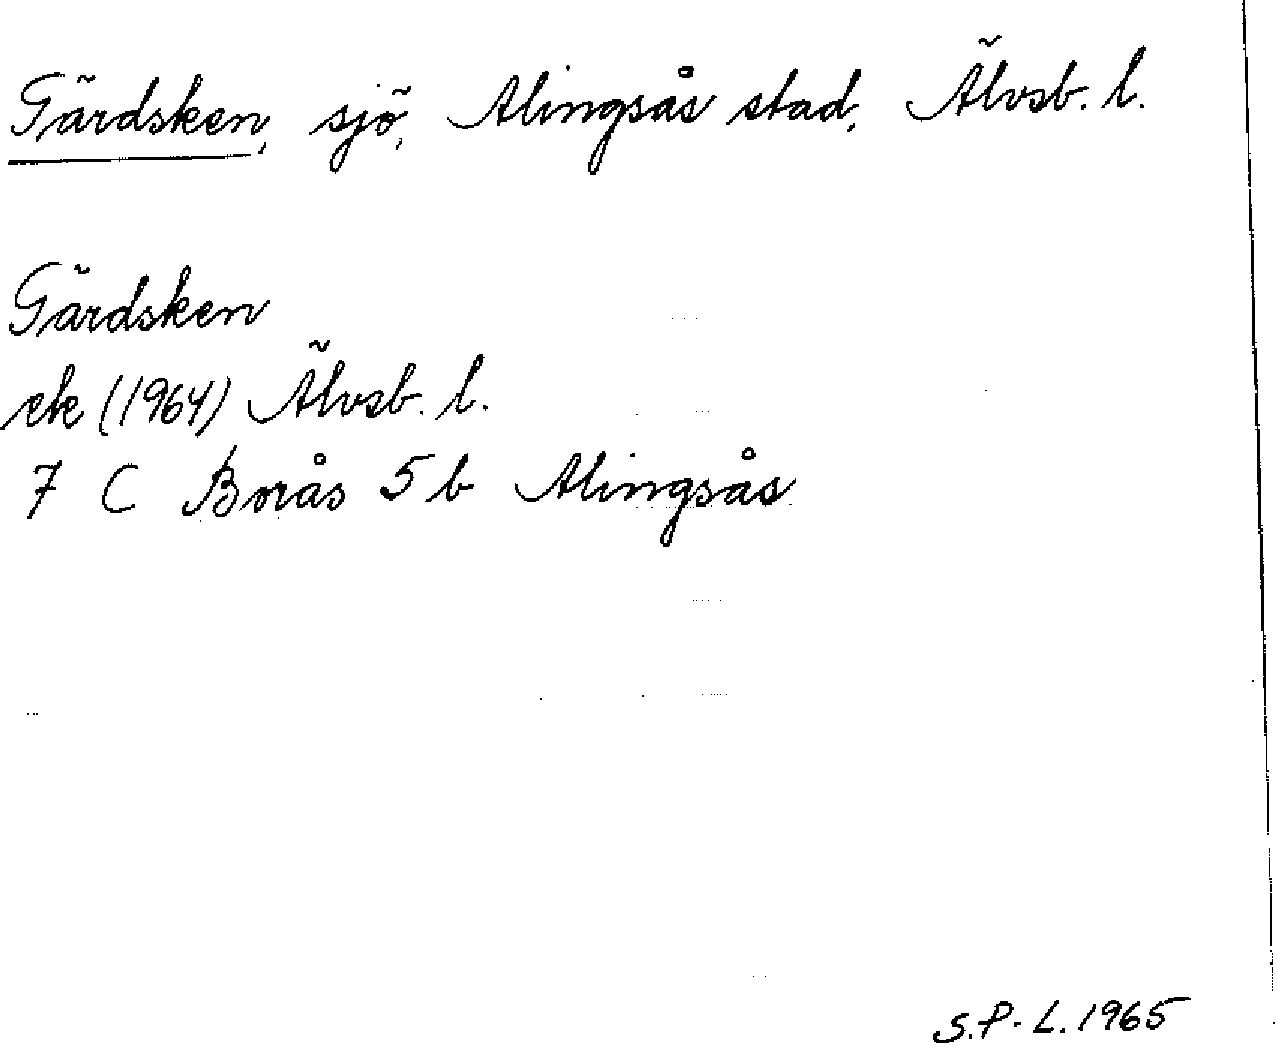 Gärdsken, sjö, Alingsås stad, Älvsb. l.
Gärdsken
ek (1964) Älvsb. l.
7 C Borås 5 b Alingsås
S.P-L. 1965